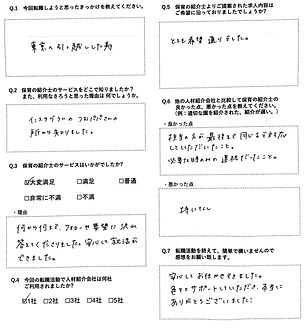 Q.1 今回転職しようと思ったきっかけを教えてください。
東京へ引っ越しした為
Q.2 保育の紹介士のサービスをどこで知りましたか？
また、利用なさろうと思った理由は何でしょうか。
インスタグラムの
知りました。
Q.3 保育の紹介士のサービスはいかがでしたか？
大変満足 □満足 □普通
□非常に不満 □不満
・理由
何から何まで、フォローや要望に
答えてくださりました。安心して
できました。
Q.4 今回の転職活動で人材紹介会社は何社
ご利用されましたか？
1社 □2社 □3社 □4社 □5社
Q.5 保育の紹介士よりご提案された求人内容は
ご希望に沿っておりましたでしょうか？
とても希望通りでした。
Q.6 他の人材紹介会社と比較して保育の紹介士の
良かった点、悪かった点を教えてください。
（例：適切な園を紹介された、紹介が遅い。）
・良かった点
担当の方が最後まで同じ方で対応
していただいたこと。
必要な時のみの連絡だったこと。
・悪かった点
特になし
Q.7 転職活動を終えて、簡単で構いませんので
感想をお願い致します。
安心しお任せできました。
サポートしていただき、本当に
ありがとうございました！